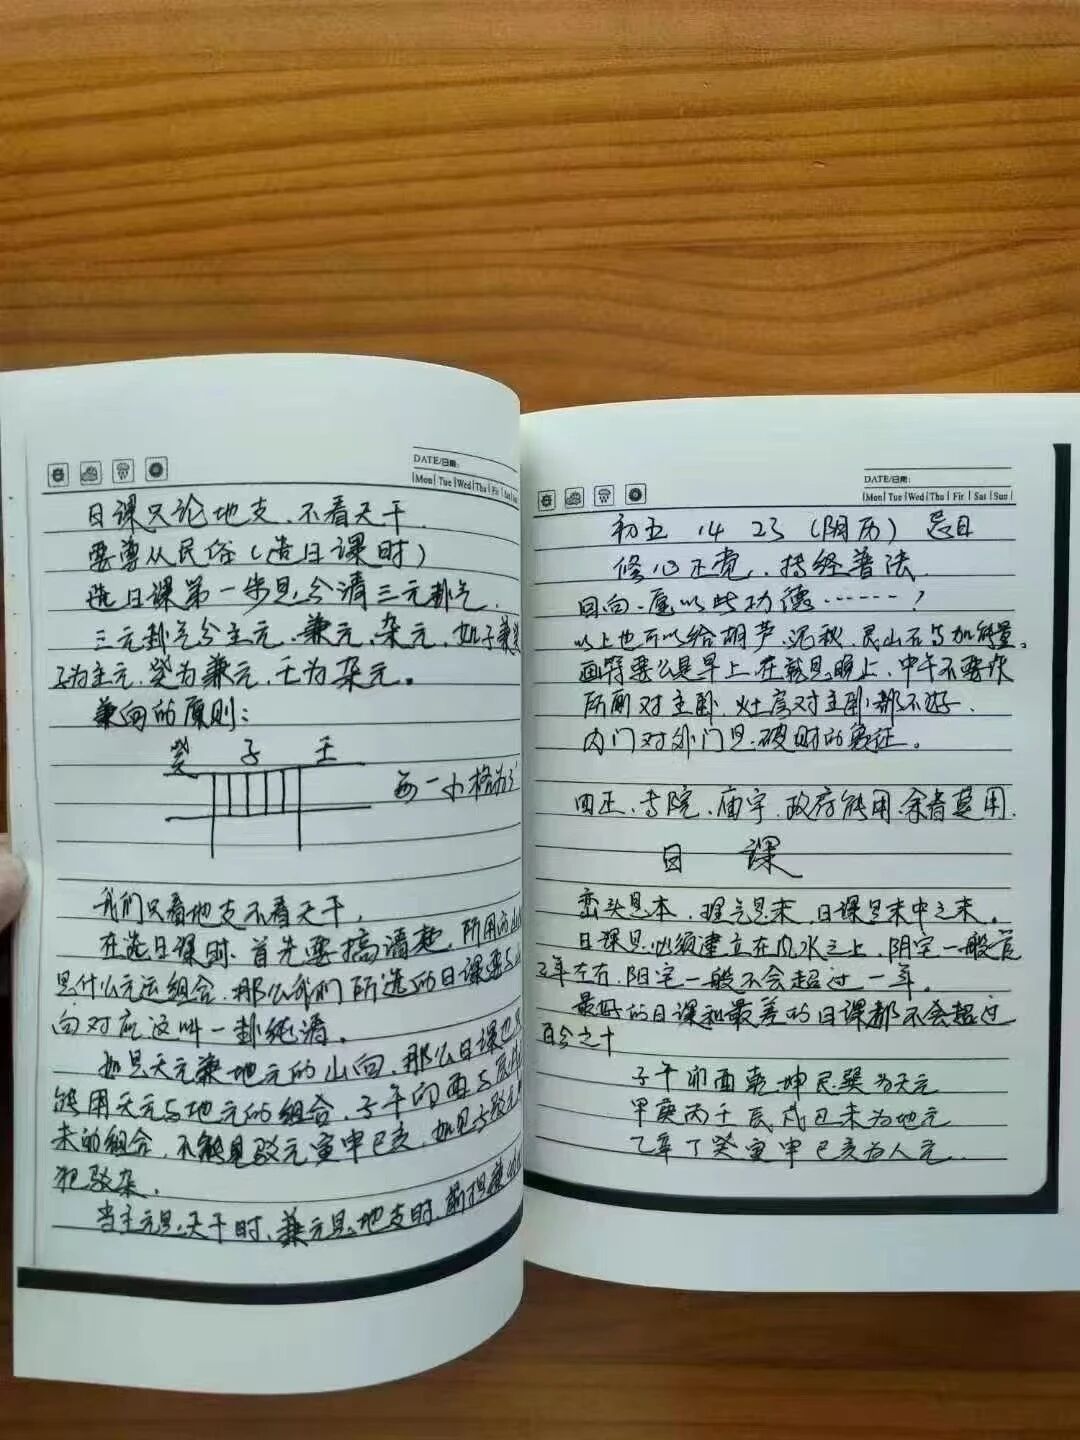 DATE/日期:
Mon Tue Wed Thu Fri Sat
日课只论地支、不看天干.
要尊从民俗(造日课时)
选日课第一步是分清三元卦气.
三元卦气分主元、兼元、杂元,如子兼癸
子为主元,癸为兼元,壬为杂元。
兼向的原则:
癸 子 壬
每一小格为
我们只看地支不看天干,
在选日课时、首先要搞清楚,所用的山
是什么元运组合,那么我们所选的日课要与山
向对应这叫一卦纯清。
如是天元兼地元的山向,那么日课也
能用天元与地元的组合,子午卯酉与辰
未的组合,不能见驳元寅申巳亥,如见
犯驳杂.
当主元是天干时、兼元是地支时,
DATE/日期:
Mon Tue Wed Thu Fir Sat Sun
初五 14 23 (阴历) 忌日
修心正觉、持经普法.
回向、愿以此功德……?
以上也可以给葫芦、泥秋、灵山石与加能量。
画符要么是早上、在就是晚上,中午不要作
所厕对主卧,灶房对主卧,都不好.
内门对外门是破财的象征。
四正、寺院、庙宇、政府能用,余者莫用.
日 课
峦头是本,理气是末,日课是末中之末。
日课是必须建立在风水之上,阴宅一般管
三年左右,阳宅一般不会超过一年。
最好的日课和最差的日课都不会超过
百分之十
子午卯酉乾坤艮巽为天元
甲庚丙壬辰戌丑未为地元
乙辛丁癸寅申巳亥为人元